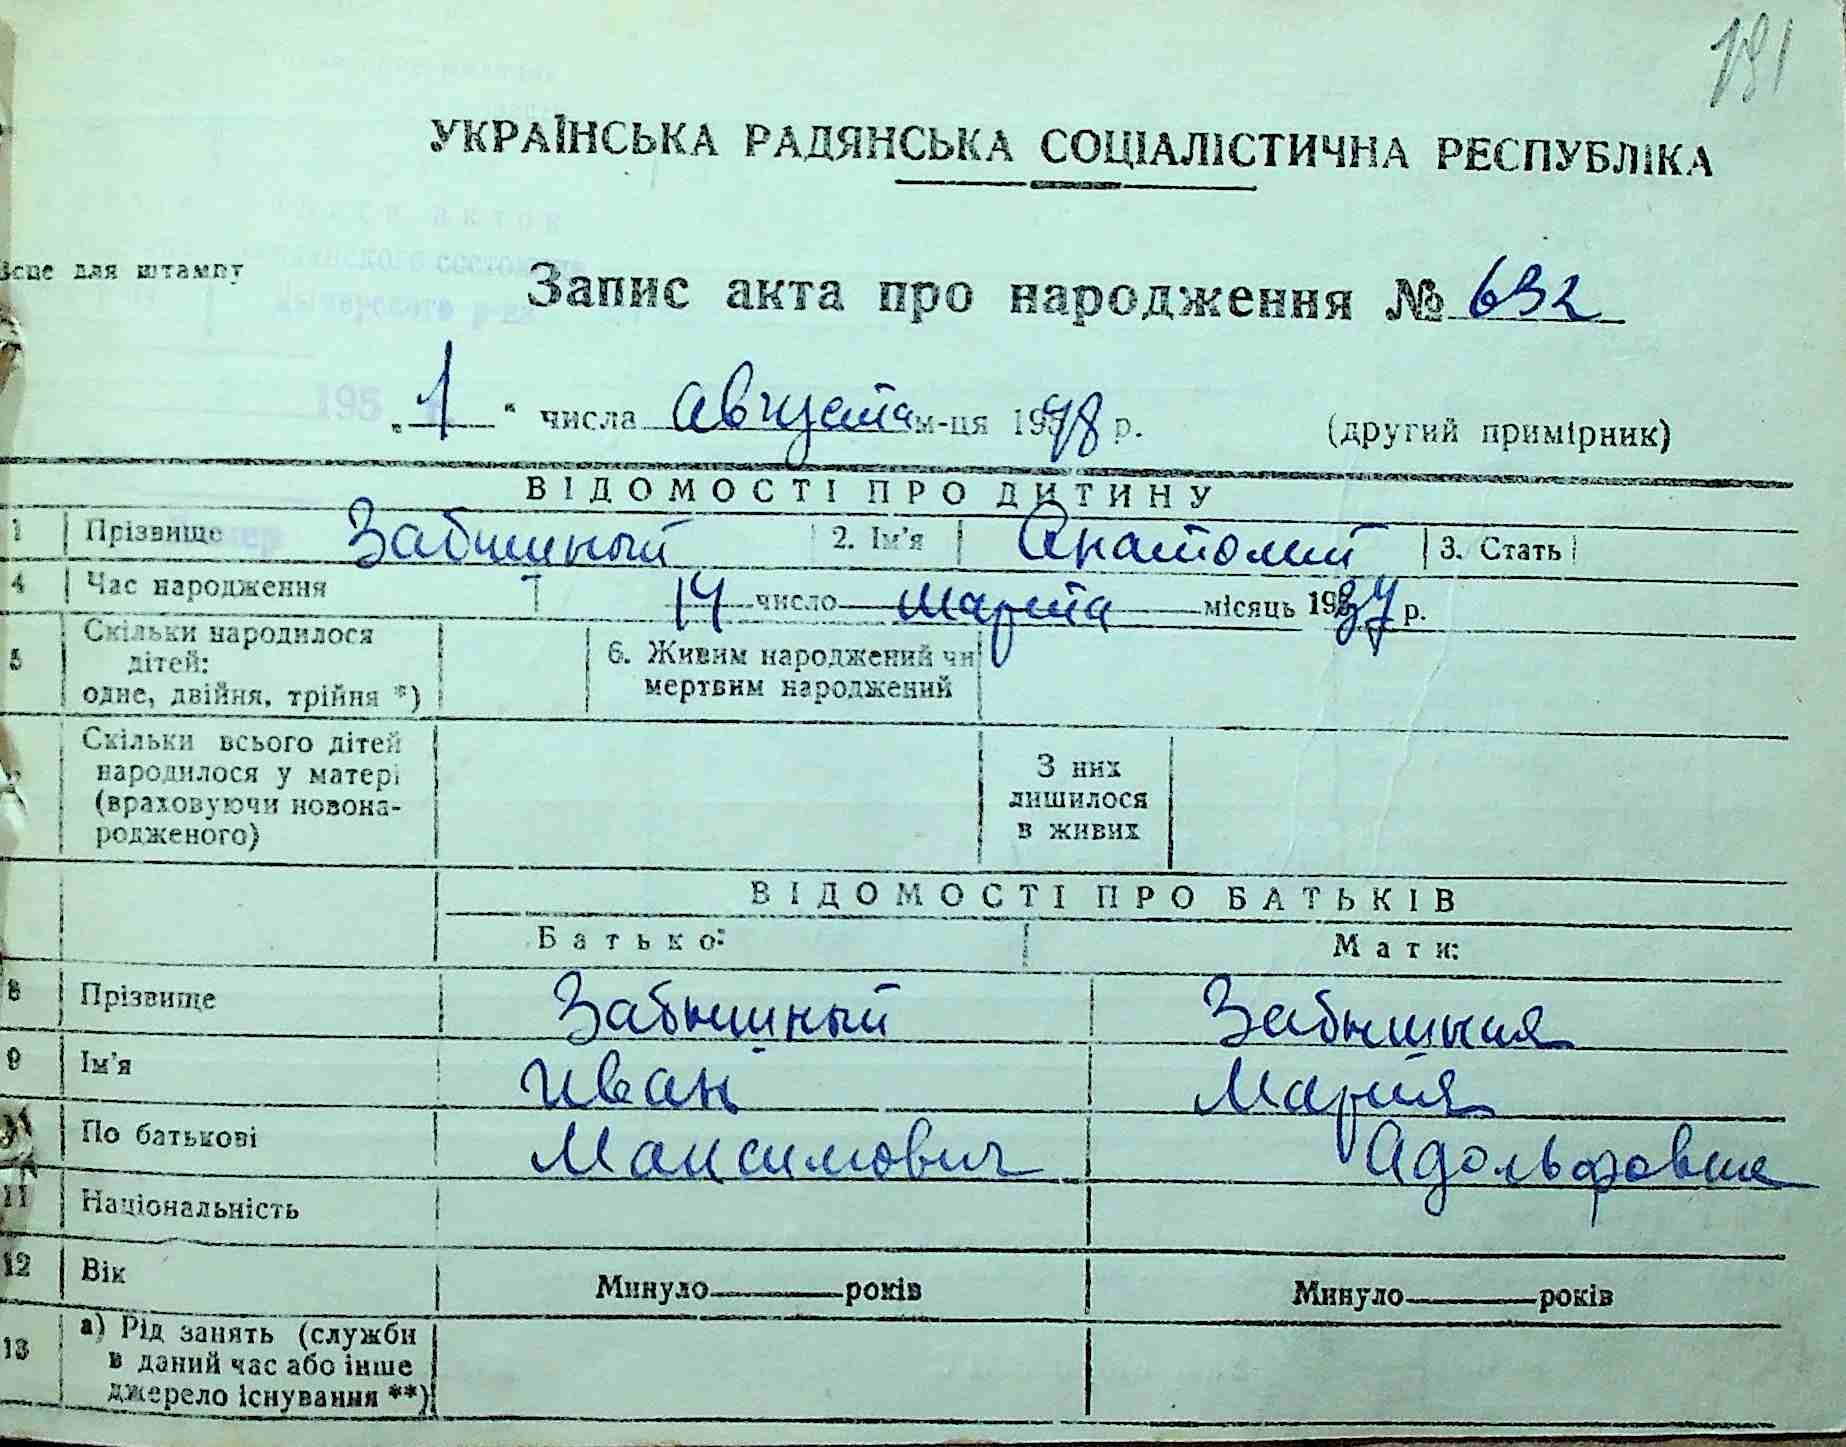 191
УКРАЇНСЬКА РАДЯНСЬКА СОЦІАЛІСТИЧНА РЕСПУБЛІКА
місце для штампу
Запис акта про народження № 632
„ 1 “ числа августа м-ця 1948 р. (другий примірник)
195 г.
ВІДОМОСТІ ПРО ДИТИНУ
1 Прізвище Забышный 2. Ім'я Анатолий 3. Стать
4 Час народження 14 число марта місяць 1937 р.
5 Скільки народилося
дітей:
одне, двійня, трійня *)
6. Живим народжений чи
мертвим народжений
Скільки всього дітей
народилося у матері
(враховуючи новона-
родженого)
З них
лишилося
в живих
ВІДОМОСТІ ПРО БАТЬКІВ
Батько: Мати:
8 Прізвище Забышный Забышная
9 Ім'я Иван Мария
По батькові Максимович Адольфовна
11 Національність
12 Вік Минуло років Минуло років
13 а) Рід занять (служби
в даний час або інше
джерело існування **)